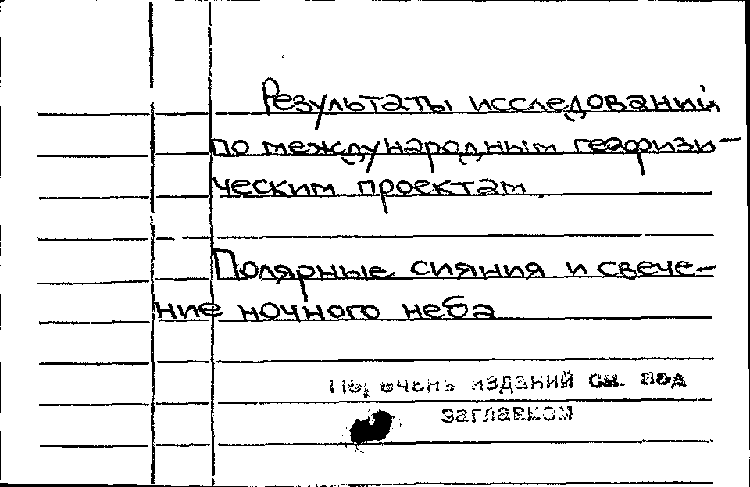 Результаты исследований
по международным геофизи-
ческим проектам.
Полярные сияния и свече-
ние ночного неба
Перечень изданий см. под
заглавком